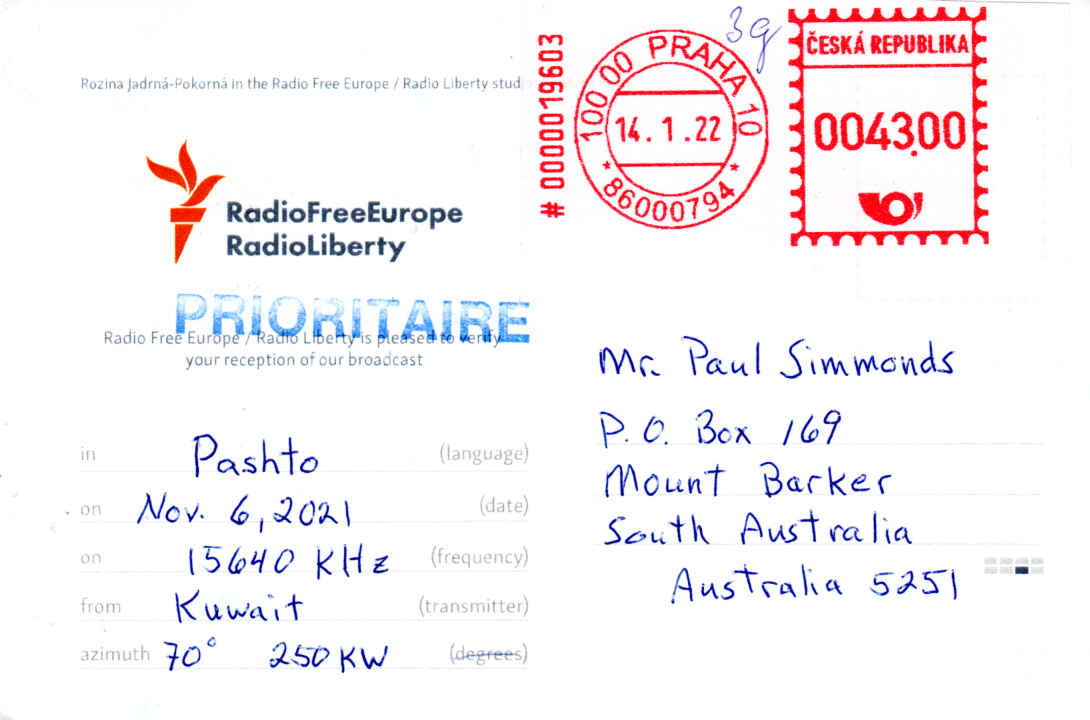 Rozina Jadrná-Pokorná in the Radio Free Europe / Radio Liberty stud
3g
# 0000019603
100 00 PRAHA 10
14. 1. 22
* 86000794 *
ČESKÁ REPUBLIKA
0043.00
RadioFreeEurope
RadioLiberty
PRIORITAIRE
Radio Free Europe / Radio Liberty is pleased to verify
your reception of our broadcast
in Pashto (language)
on Nov. 6, 2021 (date)
on 15640 KHz (frequency)
from Kuwait (transmitter)
azimuth 70° 250 KW (degrees)
Mr. Paul Simmonds
P.O. Box 169
Mount Barker
South Australia
Australia 5251